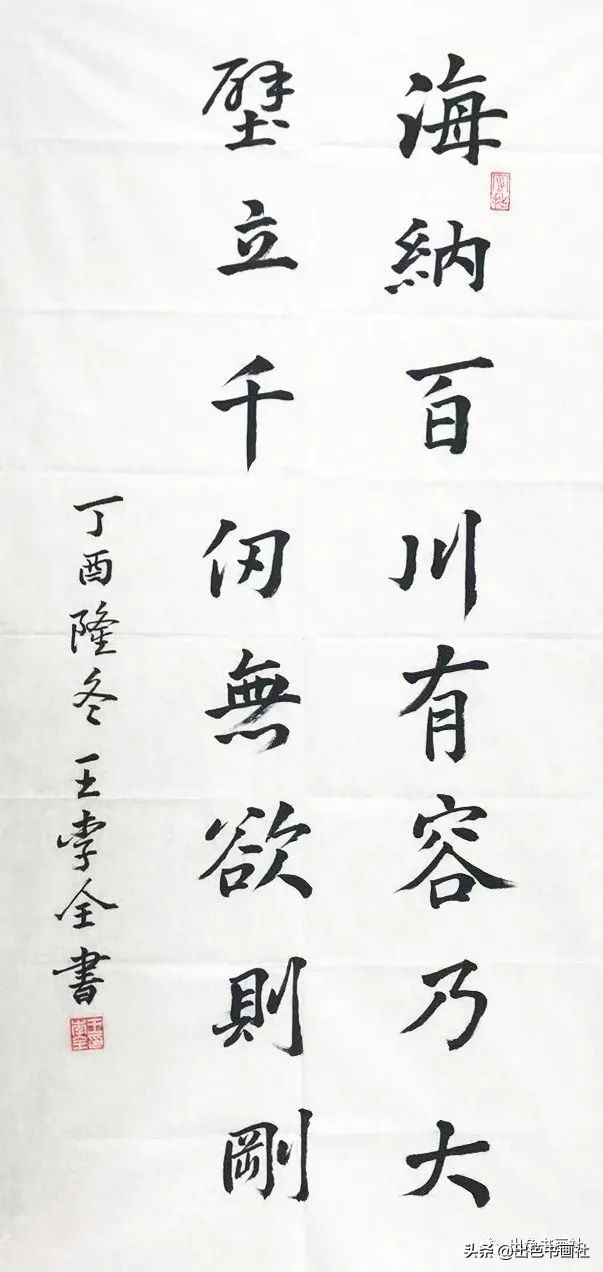 海納百川有容乃大
壁立千仞無欲則剛
丁酉隆冬王李全書
出色书画社
头条 @出色书画社